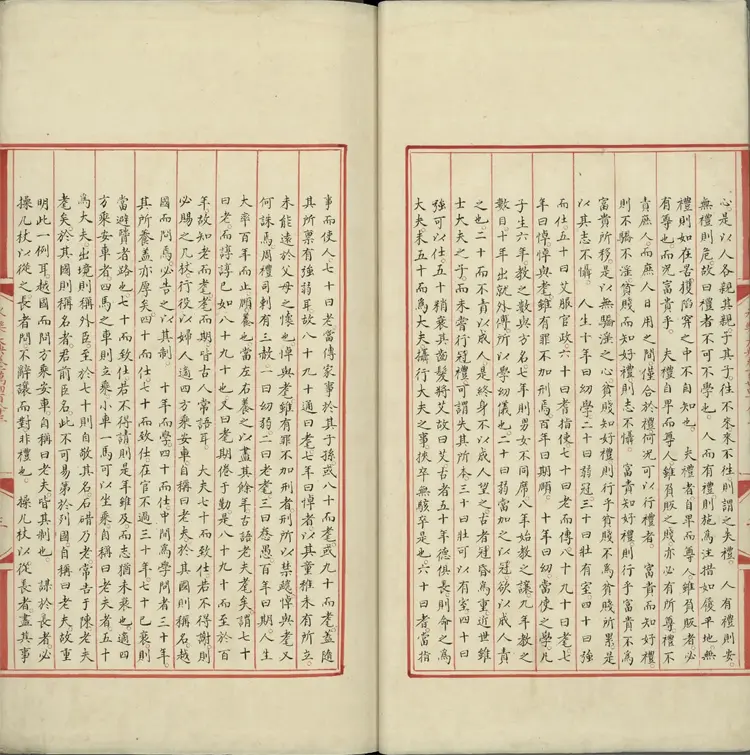 心是以人各親其親。子其子。往不來。來不往。則謂之失禮。人有禮則安。
無禮則危。故曰禮者不可不學也。人而有禮。則施為注措。如復平地。無
禮則如在罟擭陷穽之中。不自知也。夫禮者自卑而尊人。雖負販者。必
有尊也。而況富貴乎。夫禮自卑而尊人。雖貧販之賤。亦必有所尊。禮不
責庶人。而庶人日用之間。僅合於禮。何況可以行禮者。富貴而知好禮。
則不驕不淫。貧賤而知好禮。則志不懾。富貴知好禮。則行乎富貴。不為
富貴所移。是以無驕淫之心。貧賤知好禮。則行乎貧賤。不為貧賤所累。是
以其志不懾。人生十年曰幼學。二十曰弱冠。三十曰壯有室。四十曰強
而仕。五十曰艾服官政。六十曰耆指使。七十曰老而傳。八十九十曰耄。七
年曰悼。悼與耄雖有罪不加刑焉。百年曰期頤。十年曰幼。當使之學。凡
子生六年教之數與方名。七年則男女不同席。八年始教之讓。九年教之
數目。十年出就外傅。所以學幼儀也。二十曰弱。當加之以冠。欲以成人責
之也。二十而不責以成人。是終身不以成人望之。古者冠昏為重。近世雖
士大夫之子。而未嘗行冠禮。可謂失其所本。三十曰壯。可以有室。四十曰
強。可以仕。五十稍衰。其齒髮將艾。故曰艾。古者五十年德俱長。則命之為
大夫。未五十而為大夫。攝行大夫之事。挾卒無駭卒是也。六十曰耆。當指
事而使人。七十曰老。當傳家事於其子孫。或八十而耄。或九十而耄。蓋隨
其所稟有強弱耳。故八十九十通曰耄。七年曰悼者。以其童稚未有所立。
未能遠於父母之懷也。悼與耄雖有罪不加刑者。刑所以禁趆。悼與耄又
何誅焉。周禮司刺有三赦。一曰幼弱。二曰老耄。三曰惷愚。百年曰期。人生
大率百年而止。頤養也。當左右養之。以盡其餘年。古語老夫耄矣。謂七十
曰老。而諄諄已如八十九十也。又曰耄期倦于勤。是八十九十而至於百
年。故知老而耄。耄而期。皆古人常語耳。大夫七十而致仕。若不得謝。則
必賜之几杖。行役以婦人。適四方乘安車。自稱曰老夫。於其國則稱名。越
國而問焉。必告之以其制。十年而學。四十而仕。中間為學問者三十年。
其所養蓋亦厚矣。四十而仕。七十而致仕。在官不過三十年。七十已衰。則
當避賢者路也。七十而致仕。若不得請。則是年雖及而志猶未衰也。適四
方乘安車者。四馬之車則立乘。小車一馬。可以坐乘。自稱曰老夫者。五十
為大夫。出境則稱外臣。至於七十則自敬其名。石碏乃老。常告于陳老夫
耄矣。於其國則稱名者。君前臣名。此不可易。第於列國自稱曰老夫。故重
明此一例耳。越國而問。方乘安車。自稱曰老夫。皆其制也。謀於長者。必
操几杖以從之。長者問。不辭讓而對。非禮也。操几杖以從長者。盡其事